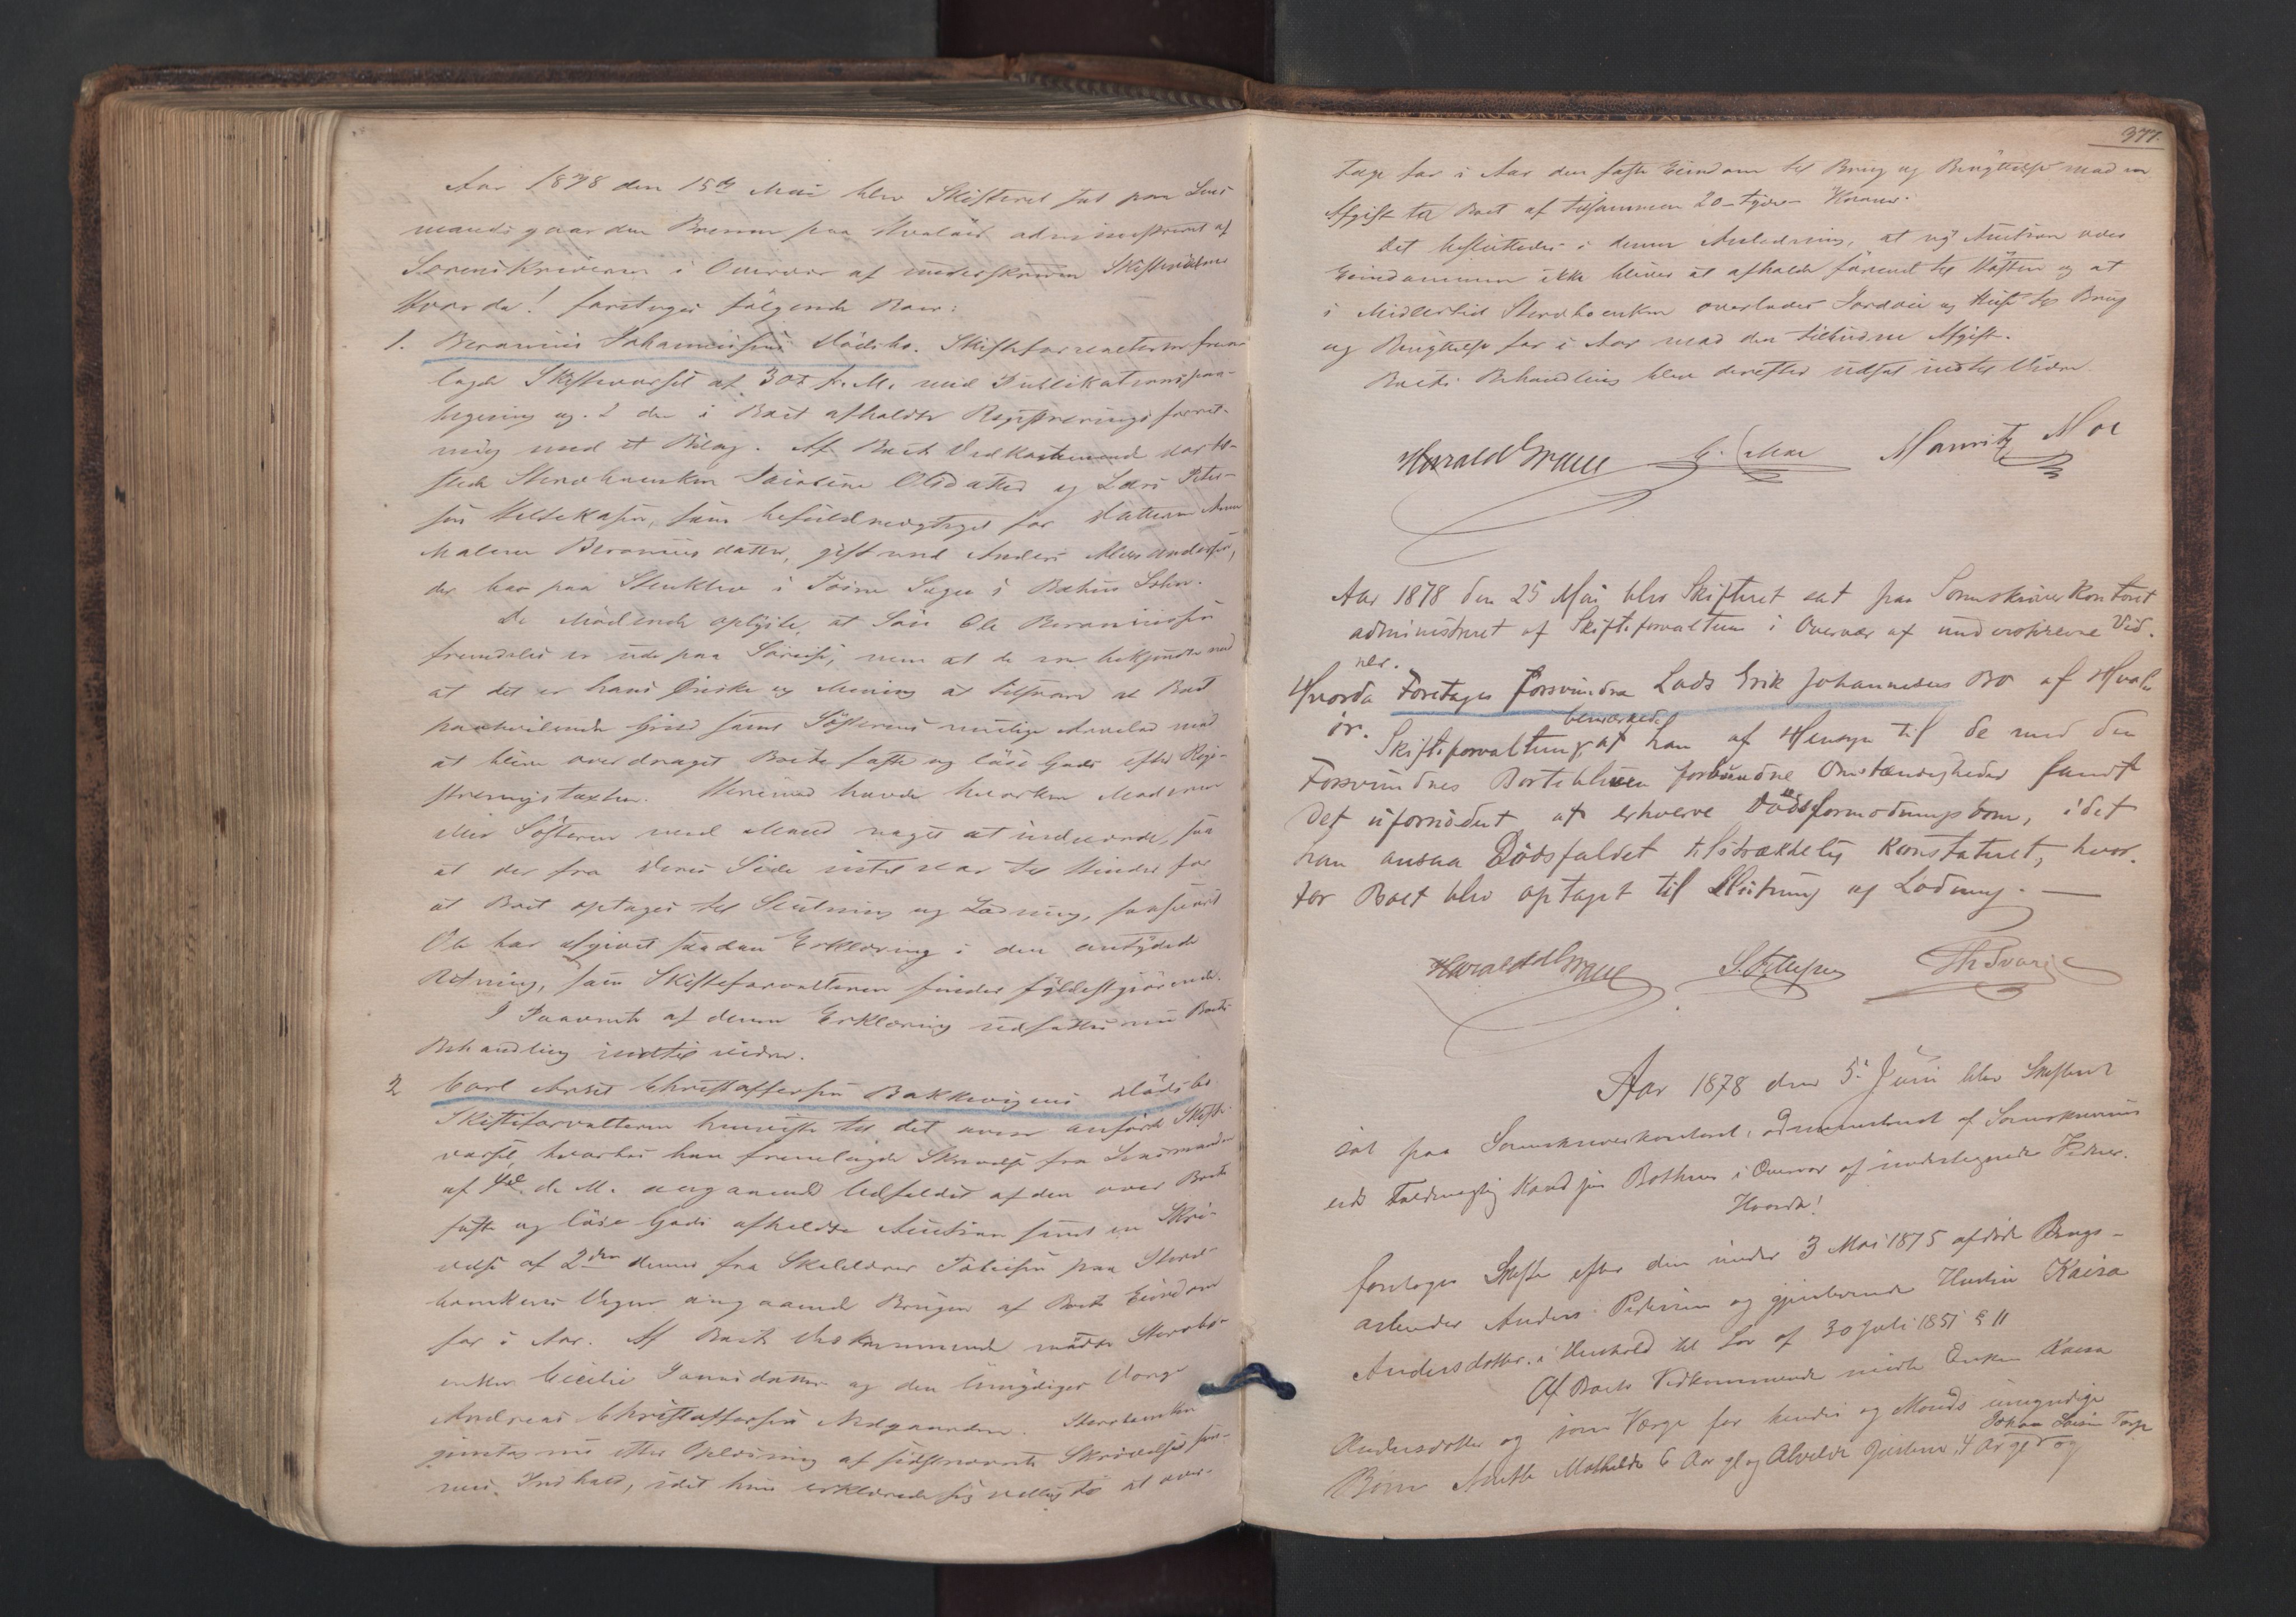 Aar 1878 den 15de Mai blev Skifteret sat paa Lens
mandsgaarden Brenne paa Hvaløer administreret af
Sorenskriveren i Overvær af underskrevne Skiftevidner
Hvorda! foretoges følgende Boer:
1. Beranius Johannessens Dødsbo. Skifteforvalteren frem
lagde Skiftevarsel af 30te f. M. med Publikationspaa-
tegning og 2 den i Boet afholdte Registreringsforret-
ning med et Bilag. Af Boets Vedkommende var til-
stede Stervboenken Olsdatter og Lars Peter-
sen, som befuldmægtiget for Datteren Anne
Malene Beraniusdatter, gift med Anders Alexandersen,
der bor paa i Sogn i Bohus Lehn.
De Mødende oplyste, at Søn Ole Beraniussen
fremdeles er ude paa Søreise, men at de ere bekjendte med
at det er hans Ønske og Mening at tilsvare al Boet
paahvilende Gjæld samt Søsterens mulige Arvelod mod
at blive overdraget Boets faste og løse Gods efter Regi-
streringstaxten. Herimod havde hverken Moderen
eller Søsteren med Mand noget at indvende, saa
at der fra deres Side intet var til Hinder for
at Boet optages til Slutning og Lodning, saasnart
Ole har afgivet saadan Erklæring i den antydede
Retning, som Skifteforvalteren finder fyldestgjørende.
I Paavente af denne Erklæring udsattes nu Boets
Behandling indtil videre.
2 Carl Anset Christoffersen Bakkevigens Dødsbo
Skifteforvalteren henviste til det ovenanførte Skifte
varsel, hvorhos han fremlagde Skrivelse fra Lensmanden
af 4de d. M. angaaende Udfaldet af den over Boets
faste og løse Gods afholdte Auktion samt en Skri-
velse af 2den dennes fra Skolelærer paa Stervbo-
enkens Vegne angaaende Brugen af Boets Eiendom
for i Aar. Af Boets Vedkommende mødte Stervbo-
enken Cecilie Jonnsdatter og den Umyndiges Værge
Andreas Christoffersen Nedgaarden. Stervboenken
gjentog nu efter Oplæsning af sidstnævnte Skrivelse sam-
mes Indhold, idet hun erklærede sig villig til at over-
377.
tage for i Aar den faste Eiendom til Brug og Benyttelse mod en
Afgift til Boet af tilsammen 20 – tyve – Kroner.
Det besluttedes i denne Anledning, at ny Auktion over
Eiendommen ikke bliver at afholde førend til Høsten og at
i Midlertid Stervboenken overlades Jordvei og Huse til Brug
og Benyttelse for i Aar mod den tilbudne Afgift.
Boets Behandling blev derefter udsat indtil Videre.
Harald Graae G. Moe Mauritz Moe
Aar 1878 den 25 Mai blev Skifteret sat paa Sorenskriverkontoret
administreret af Skifteforvalteren i Overvær af underskrevne Vid-
ner.
Hvorda Foretoges forsvundne Lods Erik Johannesens Bo af Hval-
ør.
bemærkede
Skifteforvalteren at han af Hensyn til de med den
Forsvundnes Bortebliven forbundne Omstændigheder fandt
det ufornødent at erhverve Dødsformodningsdom, idet
han ansaa Dødsfaldet tilstrækkelig konstateret, hvor-
for Boet blev optaget til Slutning og Lodning. —
Harald Graae S. Th Svarig
Aar 1878 den 5. Juni blev Skifteret
sat paa Sorenskriverkontoret, administreret af Sorenskriverens
eds. Fuldmægtig Kand jur Bothner i Overvær af undertegnede Vidner.
Hvorda!
foretoges Skifte efter den under 3 Mai 1875 afdøde Brugs-
arbeider Anders Pedersen og gjenlevende Hustru Kaisa
Andersdotter i Henhold til Lov af 30 Juli 1851 § 11
Af Boets Vedkommende mødte Enken Kaisa
Andersdotter og som Værge for hendes og Mands umyndige
Johan Torp
Børn Anette Mathilde 6 Aar gl og Alvilde Justine 4 Ar gl og